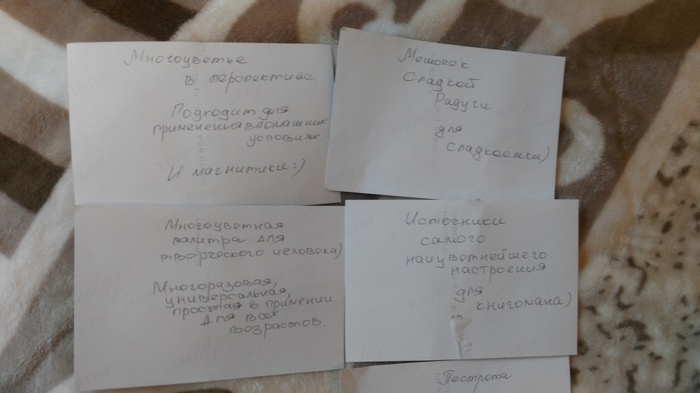 Многоцветье
в перспективе
Подходит для
применения в домашних
условиях
И магнитики :)
Мешочек
Сладкой
Радуги
для
сладкоежки)
Многоцветная
палитра для
творческого человека)
Многоразовая,
универсальная,
простая в применении.
Для всех
возрастов.
Источники
самого
наицветнейшего
настроения
для
книгомана)
Пестрота